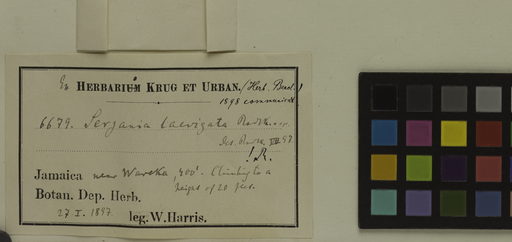 Ex HERBARIUM KRUG ET URBAN. (Herb. Berol.)
1898 communicat
6679. Serjania laevigata Radlk.
det. Radlk. VII 97
! R.
Jamaica near Wareka, 400'. Climbing to a
height of 20 feet.
Botan. Dep. Herb.
27 I. 1897. leg. W. Harris.